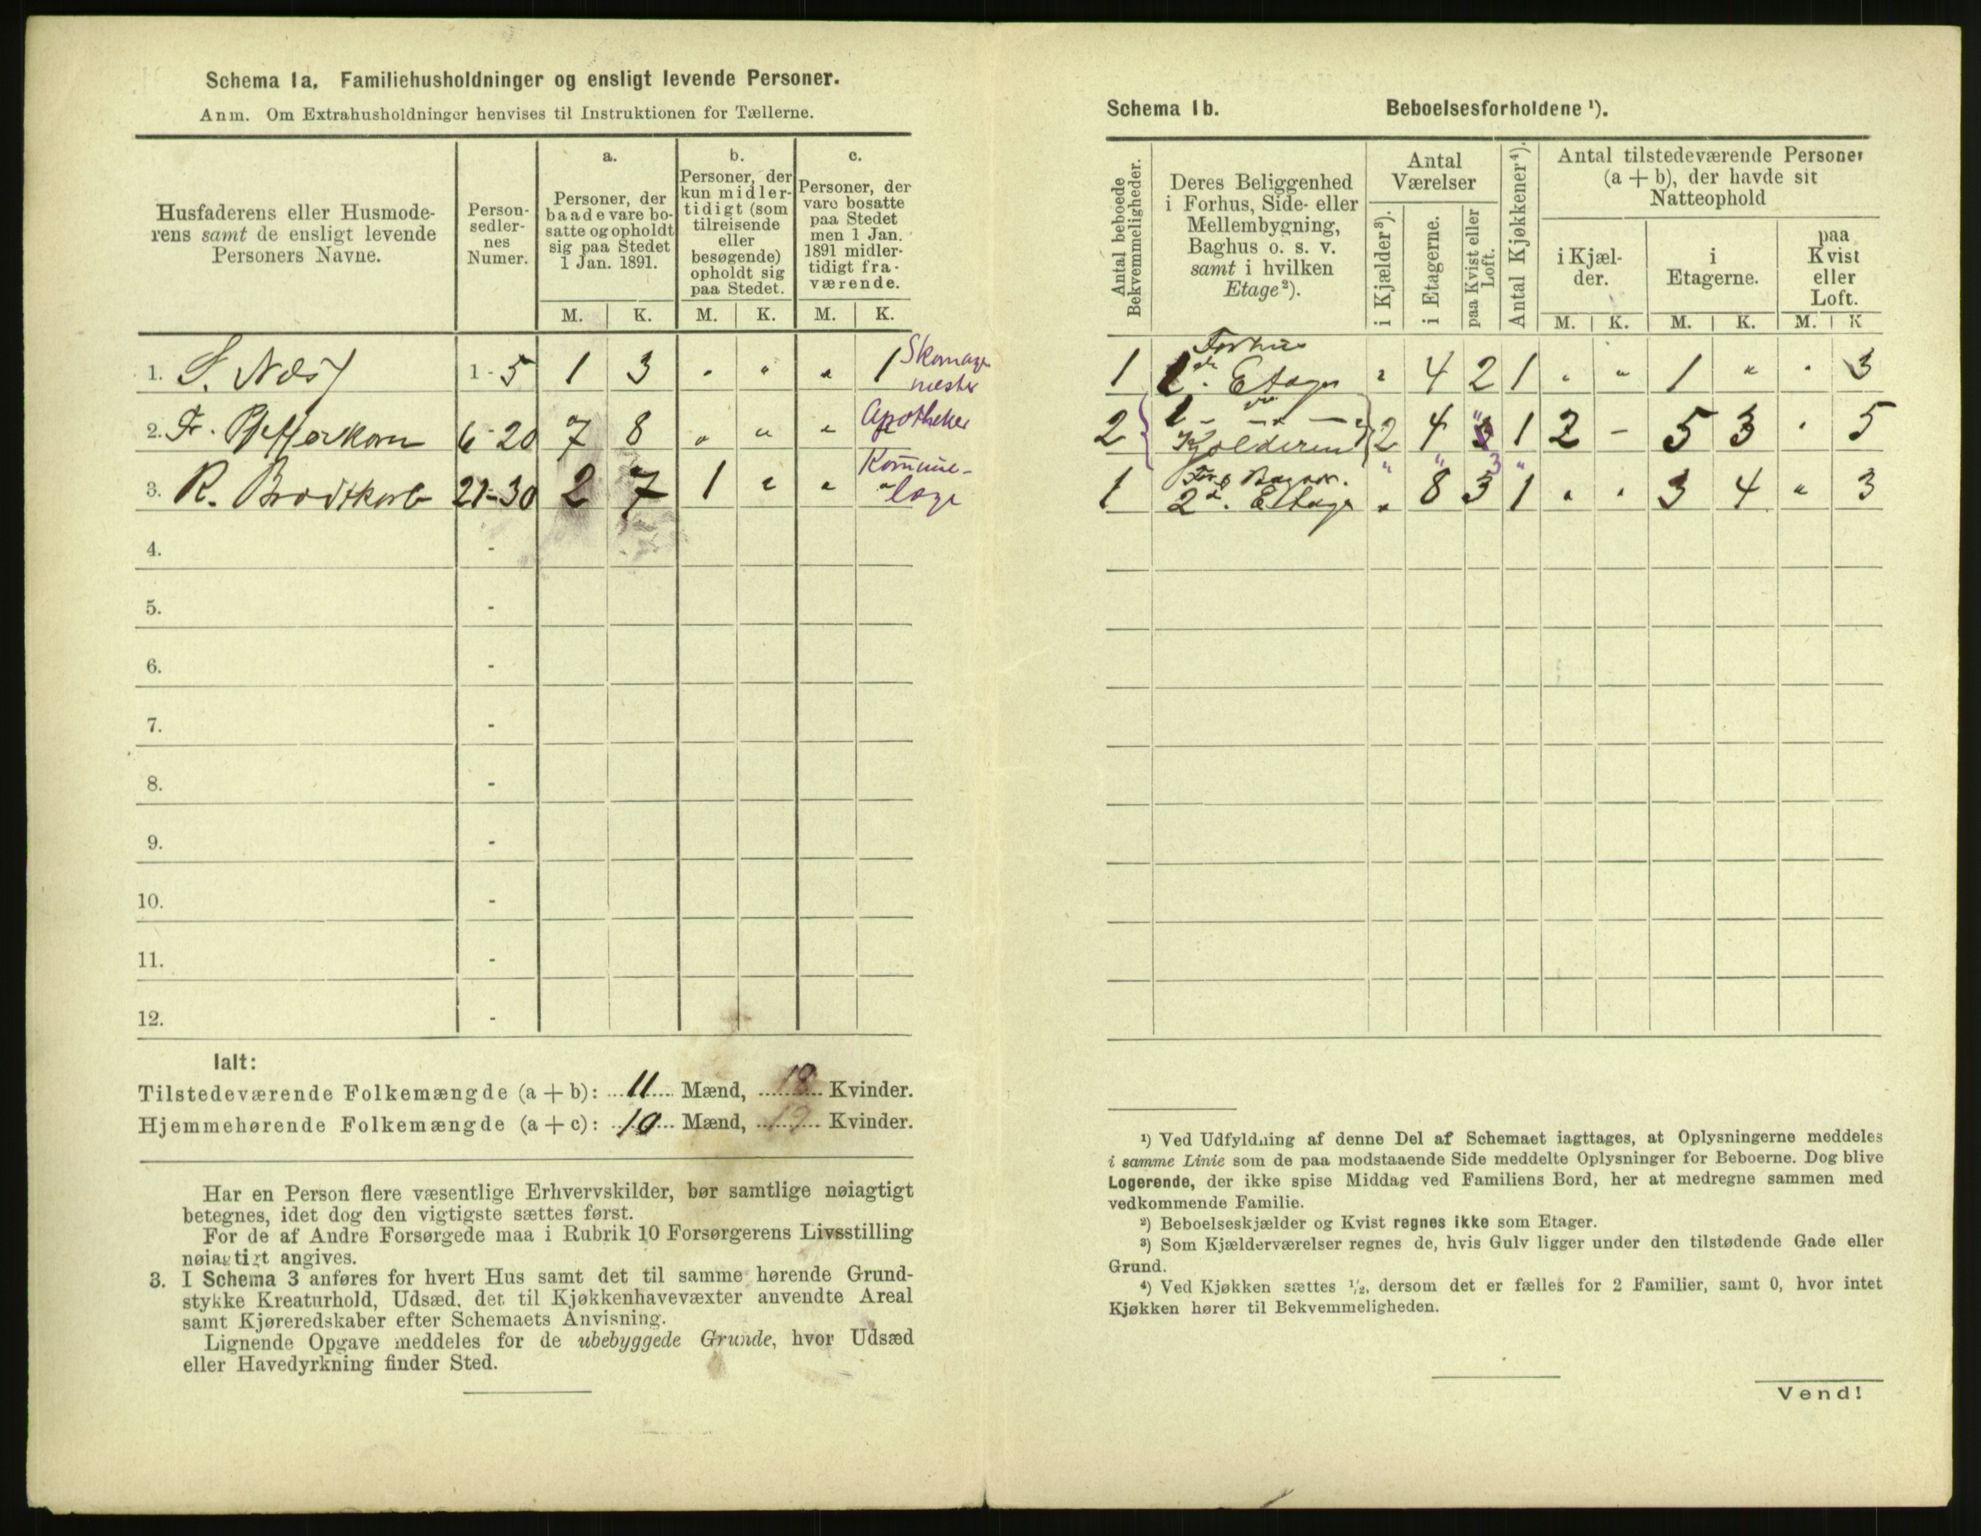 Schema 1a. Familiehusholdninger og ensligt levende Personer.
Anm. Om Extrahusholdninger henvises til Instruktionen for Tællerne.
Husfaderens eller Husmode-
rens samt de ensligt levende
Personers Navne.
Person-
sedler-
nes
Numer.
a.
Personer, der
baade vare bo-
satte og opholdt
sig paa Stedet
1 Jan. 1891.
b.
Personer, der
kun midler-
tidigt (som
tilreisende
eller
besøgende)
opholdt sig
paa Stedet.
c.
Personer, der
vare bosatte
paa Stedet
men 1 Jan.
1891 midler-
tidigt fra-
værende.
M. K. M. K. M. K.
1. S. Næss 1-5 1 3 " " " 1 Skomager
mester
2. Fr. Pfefferkorn 6-20 7 8 " " " Apotheker
3. R. Brodtkorb 21-30 2 7 1 " " " Kommune-
læge
4. -
5. -
6. -
7. -
8. -
9. -
10. -
11. -
12. -
Ialt:
Tilstedeværende Folkemængde (a + b): 11 Mænd, 18 Kvinder.
Hjemmehørende Folkemængde (a + c): 10 Mænd, 19 Kvinder.
Har en Person flere væsentlige Erhvervskilder, bør samtlige nøiagtigt
betegnes, idet dog den vigtigste sættes først.
For de af Andre Forsørgede maa i Rubrik 10 Forsørgerens Livsstilling
nøiagtigt angives.
3. I Schema 3 anføres for hvert Hus samt det til samme hørende Grund-
stykke Kreaturhold, Udsæd, det til Kjøkkenhavevæxter anvendte Areal
samt Kjøreredskaber efter Schemaets Anvisning.
Lignende Opgave meddeles for de ubebyggede Grunde, hvor Udsæd
eller Havedyrkning finder Sted.
Schema 1b. Beboelsesforholdene ¹).
Antal beboede
Bekvemmeligheder.
Deres Beliggenhed
i Forhus, Side- eller
Mellembygning,
Baghus o. s. v.
samt i hvilken
Etage²).
Antal
Værelser
i Kjælder³).
i Etagerne.
paa Kvist eller
Loft.
Antal Kjøkkener⁴).
Antal tilstedeværende Personer
(a + b), der havde sit
Natteophold
i Kjæl-
der.
i
Etagerne.
paa
Kvist
eller
Loft.
M. K. M. K. M. K
Forhus
1 1ste Etage " 4 2 1 " " 1 " " 3
2 1 - " -
Kjolderen 2 4 " 1 2 - 5 3 " 5
1 2d. Etage " 8 3 1 " " 3 4 " 3
¹) Ved Udfyldning af denne Del af Schemaet iagttages, at Oplysningerne meddeles
i samme Linie som de paa modstaaende Side meddelte Oplysninger for Beboerne. Dog blive
Logerende, der ikke spise Middag ved Familiens Bord, her at medregne sammen med
vedkommende Familie.
²) Beboelseskjælder og Kvist regnes ikke som Etager.
³) Som Kjælderværelser regnes de, hvis Gulv ligger under den tilstødende Gade eller
Grund.
⁴) Ved Kjøkken sættes ½, dersom det er fælles for 2 Familier, samt 0, hvor intet
Kjøkken hører til Bekvemmeligheden.
Vend!